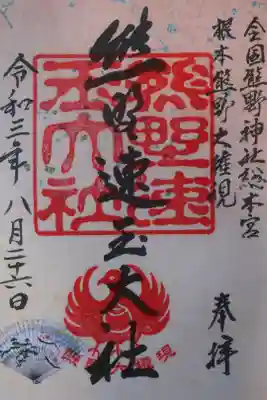 全国熊野神社総本宮
根本熊野大権現
奉拝
熊野速玉大社
令和三年八月二十六日
熊野速玉大社